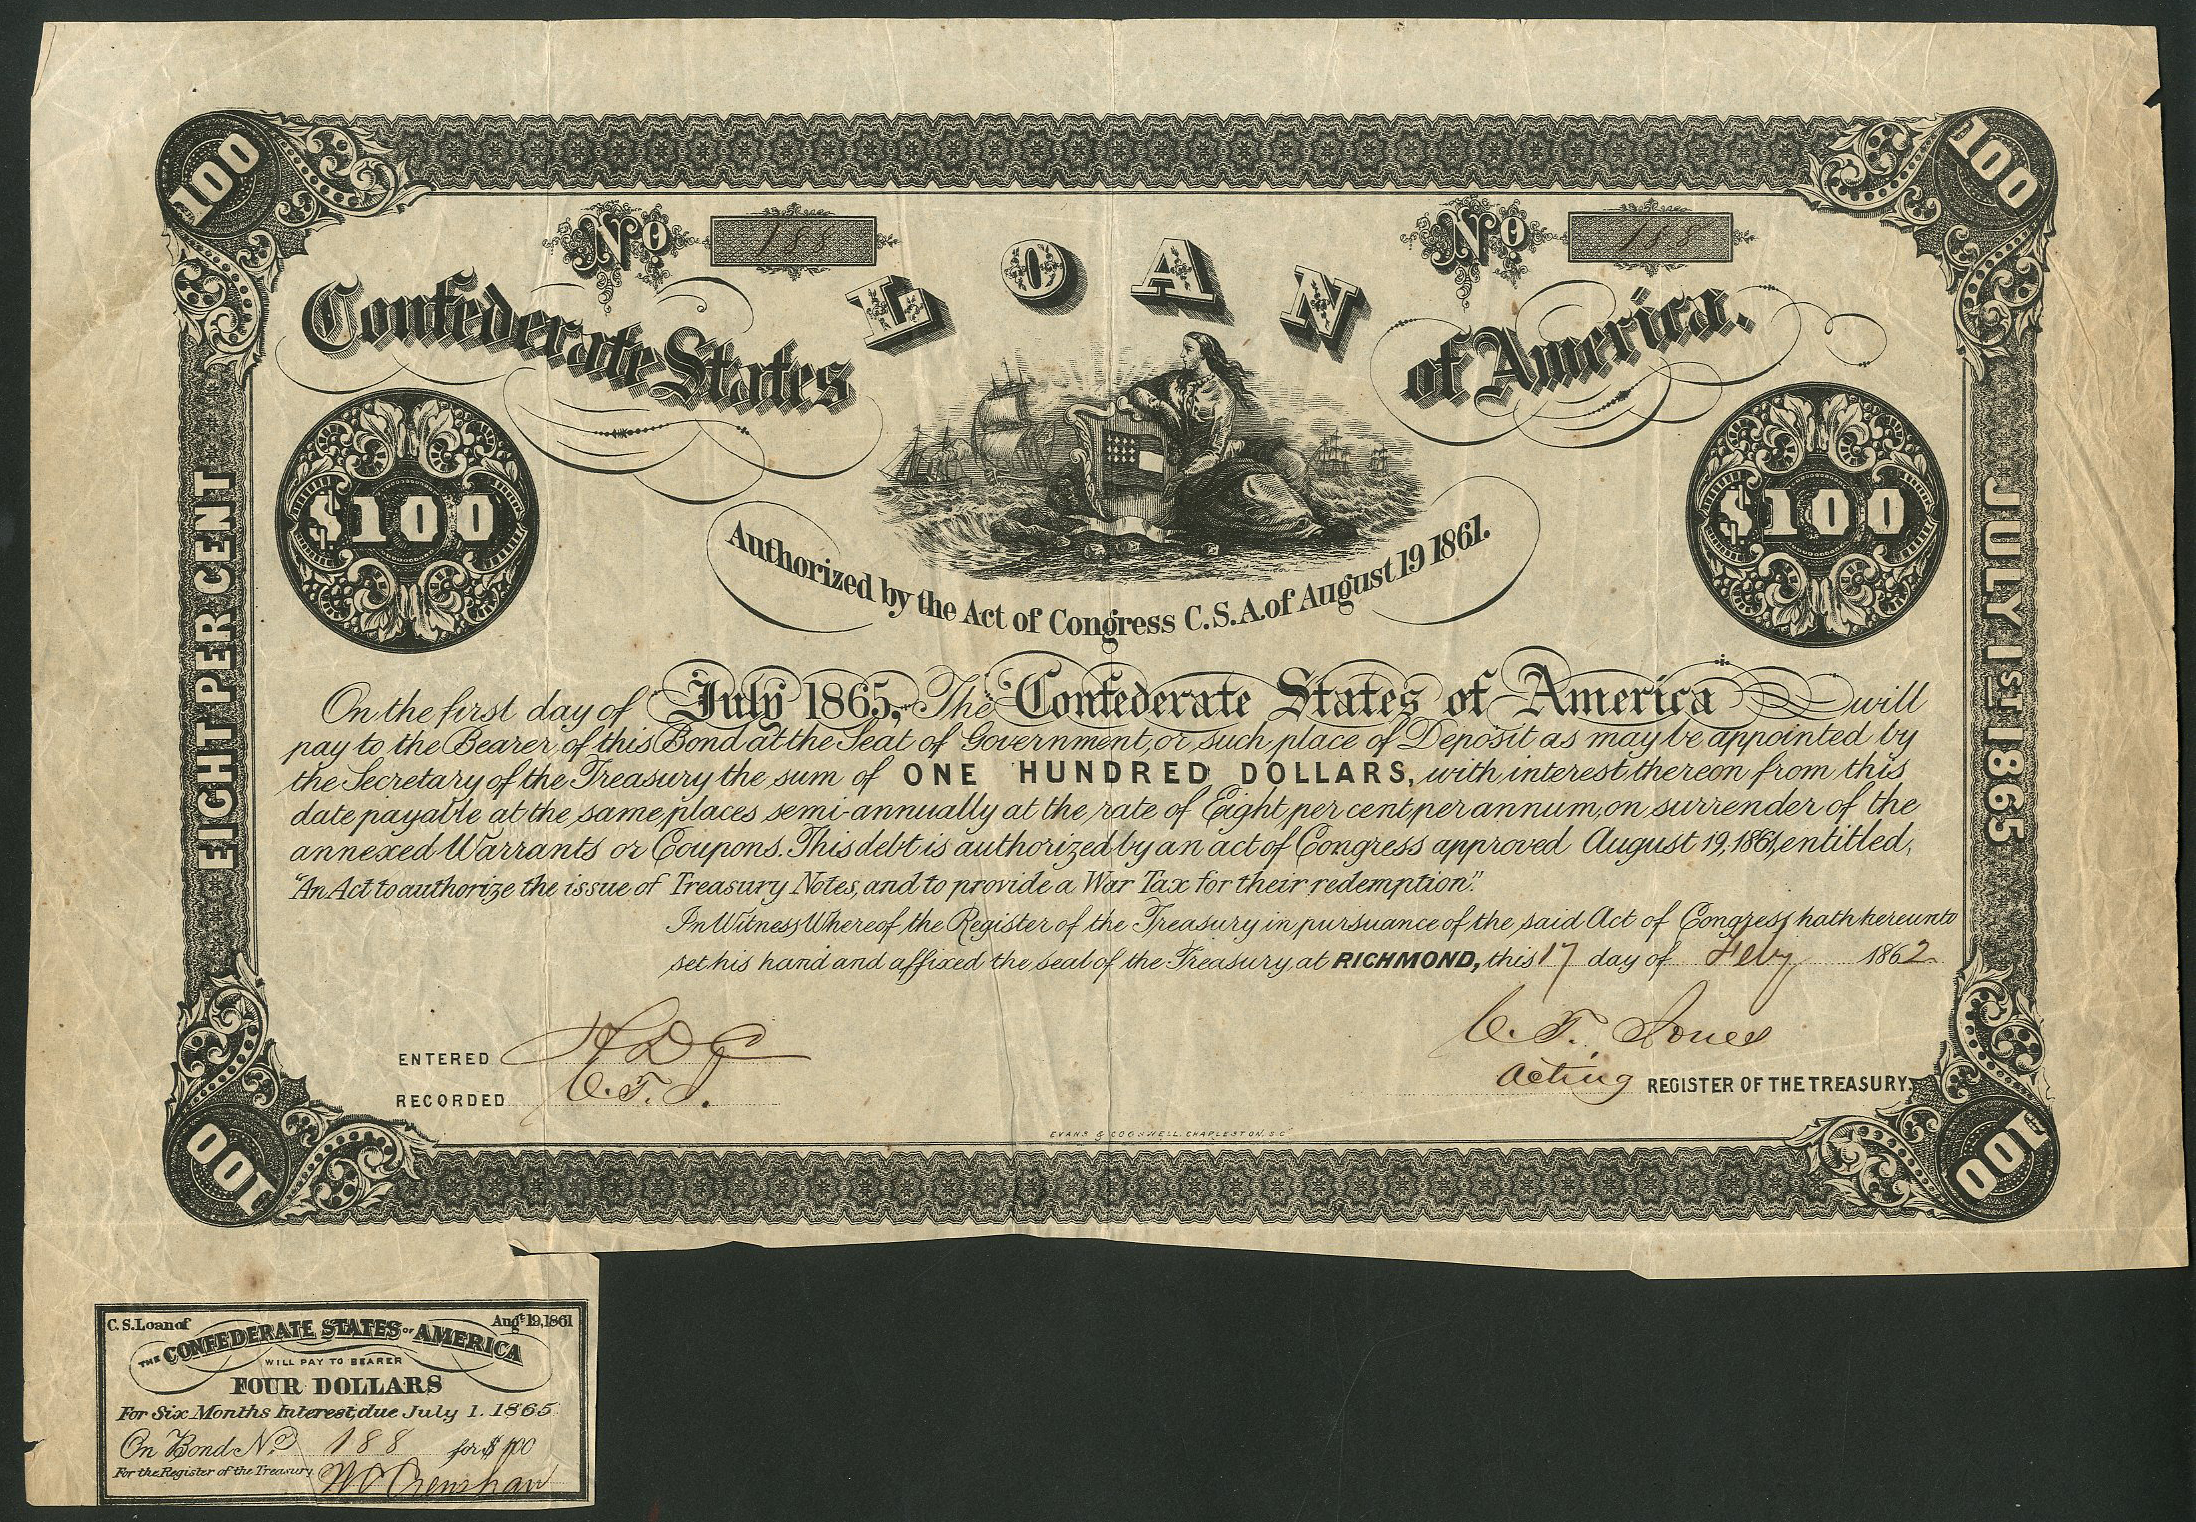 100
100
No 188
No 188
LOAN
Confederate States
of America.
$100
$100
EIGHT PER CENT
JULY 1ST 1865
Authorized by the Act of Congress C.S.A. of August 19 1861.
On the first day of July 1865, The Confederate States of America will
pay to the Bearer of this Bond at the Seat of Government, or such place of Deposit as may be appointed by
the Secretary of the Treasury the sum of ONE HUNDRED DOLLARS, with interest thereon from this
date payable at the same places semi-annually at the rate of Eight per cent per annum, on surrender of the
annexed Warrants or Coupons. This debt is authorized by an act of Congress approved August 19, 1861, entitled,
"An Act to authorize the issue of Treasury Notes, and to provide a War Tax for their redemption".
In Witness Whereof the Register of the Treasury in pursuance of the said Act of Congress, hath hereunto
set his hand and affixed the seal of the Treasury, at RICHMOND, this 17 day of Feby 1862
C. T. Jones
ENTERED
Acting REGISTER OF THE TREASURY.
RECORDED C.T.J.
EVANS & COGSWELL, CHARLESTON, S.C.
100
100
C.S. Loan of Augt. 19, 1861
THE CONFEDERATE STATES OF AMERICA
WILL PAY TO BEARER
FOUR DOLLARS
For Six Months Interest, due July 1. 1865.
On Bond No 188 for $100
For the Register of the Treasury
Crenshaw